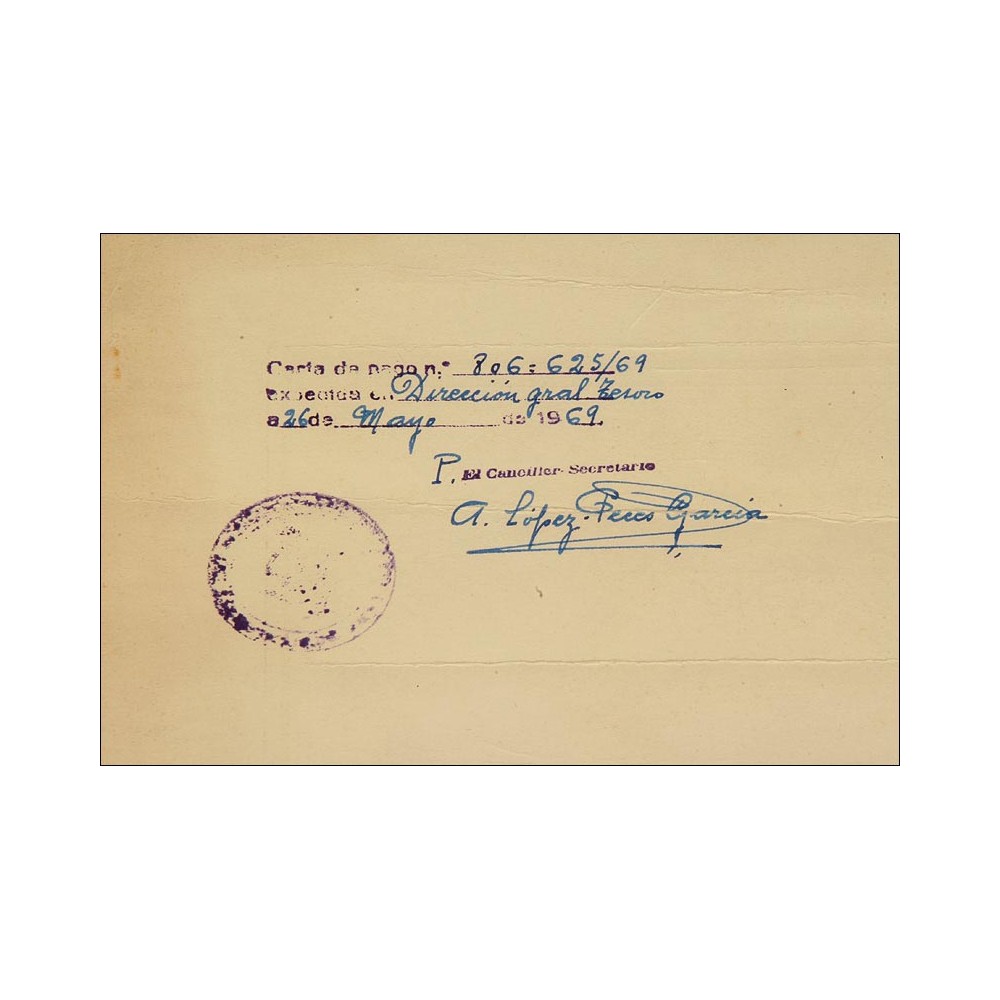 Carta de pago n.º 806:625/69
expedida en Dirección gral Tesoro
a 26 de Mayo de 1969.
P. El Canciller-Secretario
A. López García